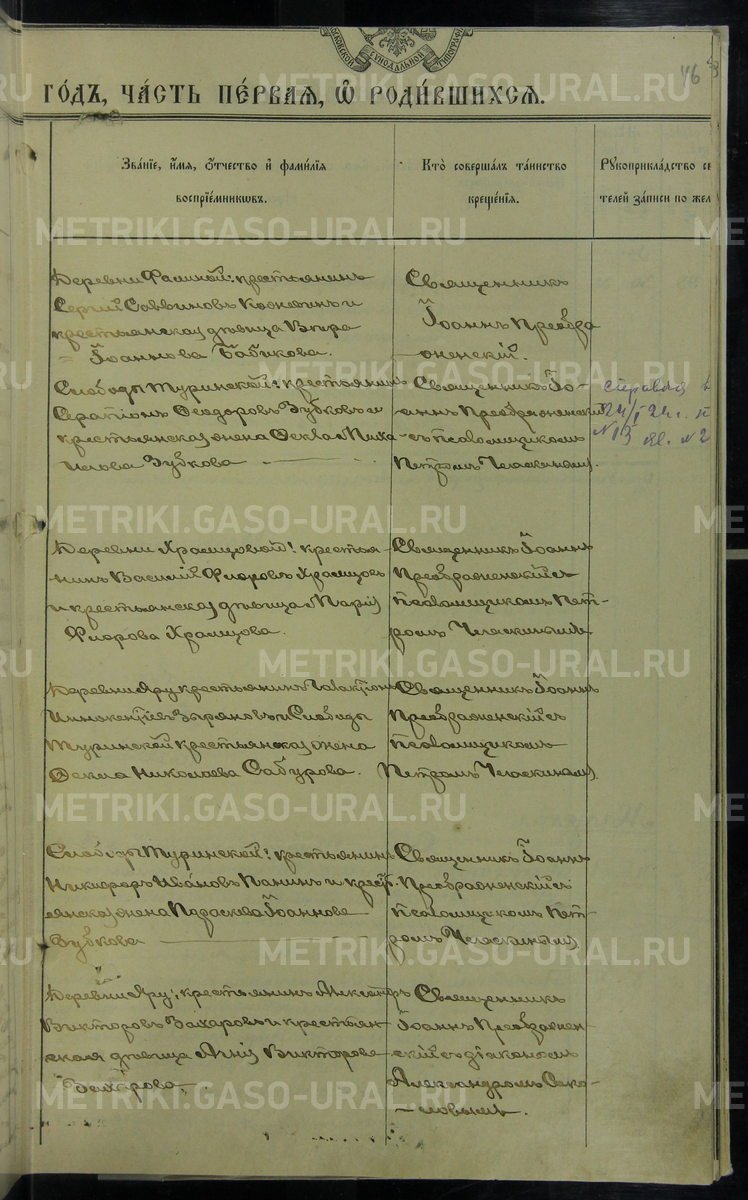 46
МОСКОВСКОЙ СИНОДАЛЬНОЙ ТИПОГРАФІИ
ГОДЪ, ЧАСТЬ ПЕРВАЯ, Ѡ РОДИВШИХСЯ.
Званіе, имя, отчество и фамилія воспріемникѡвъ.
Кто совершалъ таинство крещенія.
Рукоприкладство св
телей записи по жел
Деревни крестьянинъ
Сергій Саввиновъ и
крестьянская дѣвица Вѣра
Іоаннова Бабикова.
Священникъ
Іоаннъ Преобра
женскій.
Слободы Туринской: крестьянинъ
Серапіонъ Ѳеодоровъ Зубковъ и
крестьянская жена Ѳекла Миха
илова Зубкова
Священникъ Іо-
аннъ Преображенскій
съ псаломщикомъ
Петромъ Челяскинымъ.
справка
24/I 24 г.
№ 13
№ 2
Деревни Храмцовой: крестья-
нинъ Василій Флоровъ Храмцовъ
и крестьянская дѣвица Марія
Флорова Храмцова.
Священникъ Іоаннъ
Преображенскій съ
псаломщикомъ Пет-
ромъ Челяскинымъ
Деревни Яру крестьянинъ Галактіонъ
Иннокентіевъ Зыряновъ и Слободы
Туринской крестьянская жена
Ѳекла Николаева Сабурова.
Священникъ Іоаннъ
Преображенскій съ
псаломщикомъ
Петромъ Челяскинымъ.
Слободы Туринской: крестьянинъ
Никифоръ Ивановъ Панинъ и крест
янская жена Параскева Іоаннова
Зубкова
Священникъ Іоаннъ
Преображенскій съ
псаломщикомъ Пет-
ромъ Челяскинымъ
Деревни Яру: крестьянинъ Александръ
Викторовъ Захаровъ и крестьян
ская дѣвица Анна Викторова
Захарова.
Священникъ
Іоаннъ Преображен-
скій съ діакономъ
Александромъ Соко-
ловымъ.
METRIKI.GASO-URAL.RU